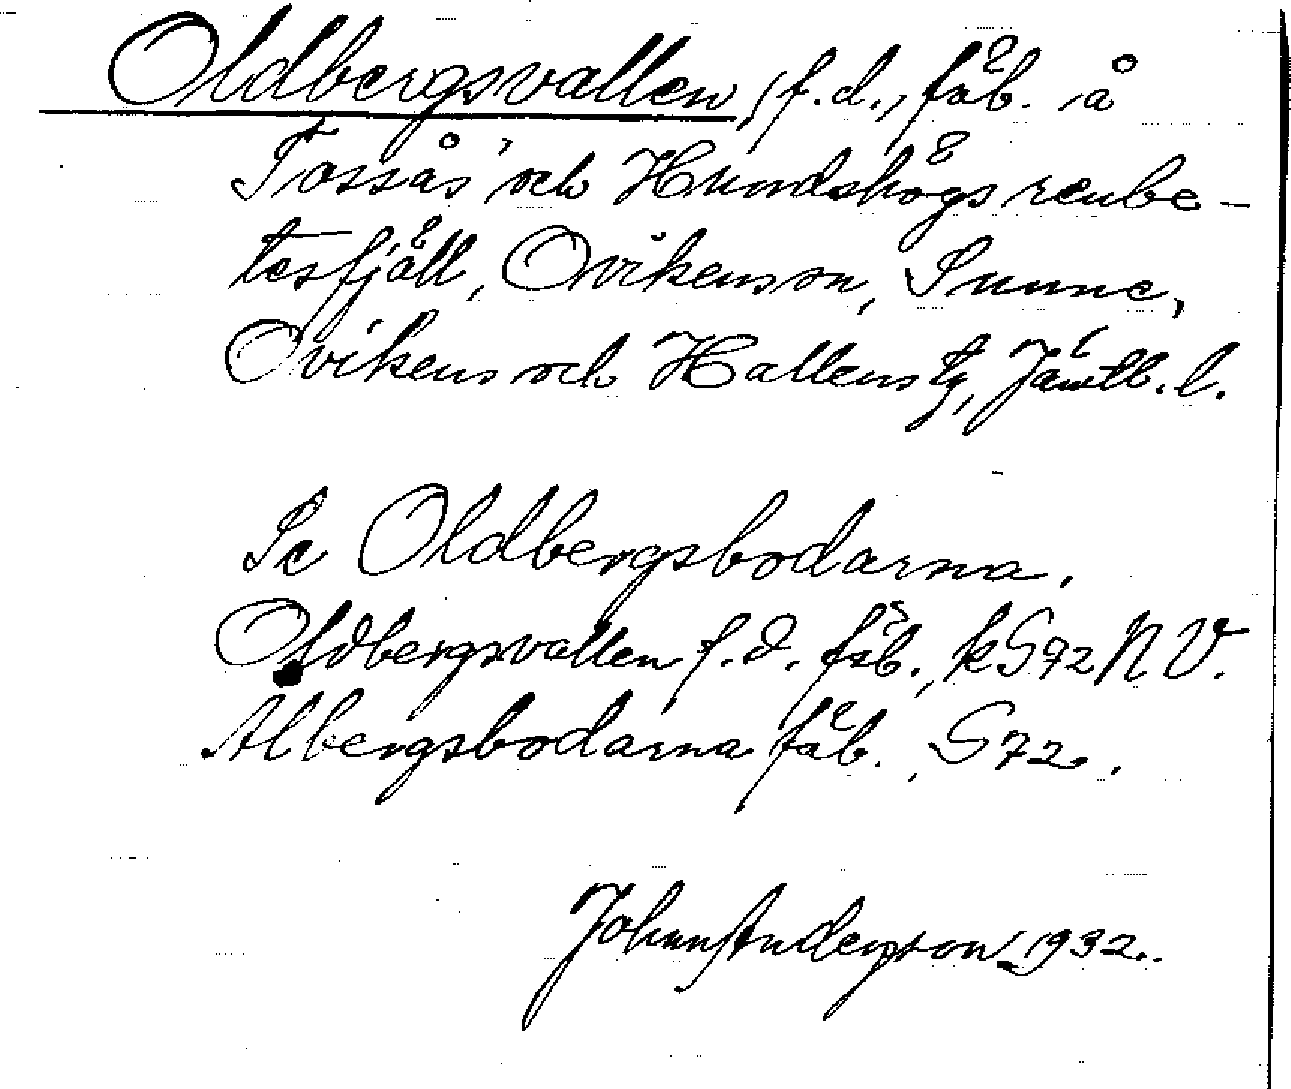 Oldbergsvallen, f.d., fäb. å
Tossås och Hundshögs renbe-
tesfjäll, Ovikensson, Sunne,
Ovikens och Hallens tg, Jämtl. l.
Se Oldbergsbodarna.
Oldbergsvallen f.d. fäb., k S72 N V.
Albergsbodarna fäb., S72.
Johan Anderson 1932.